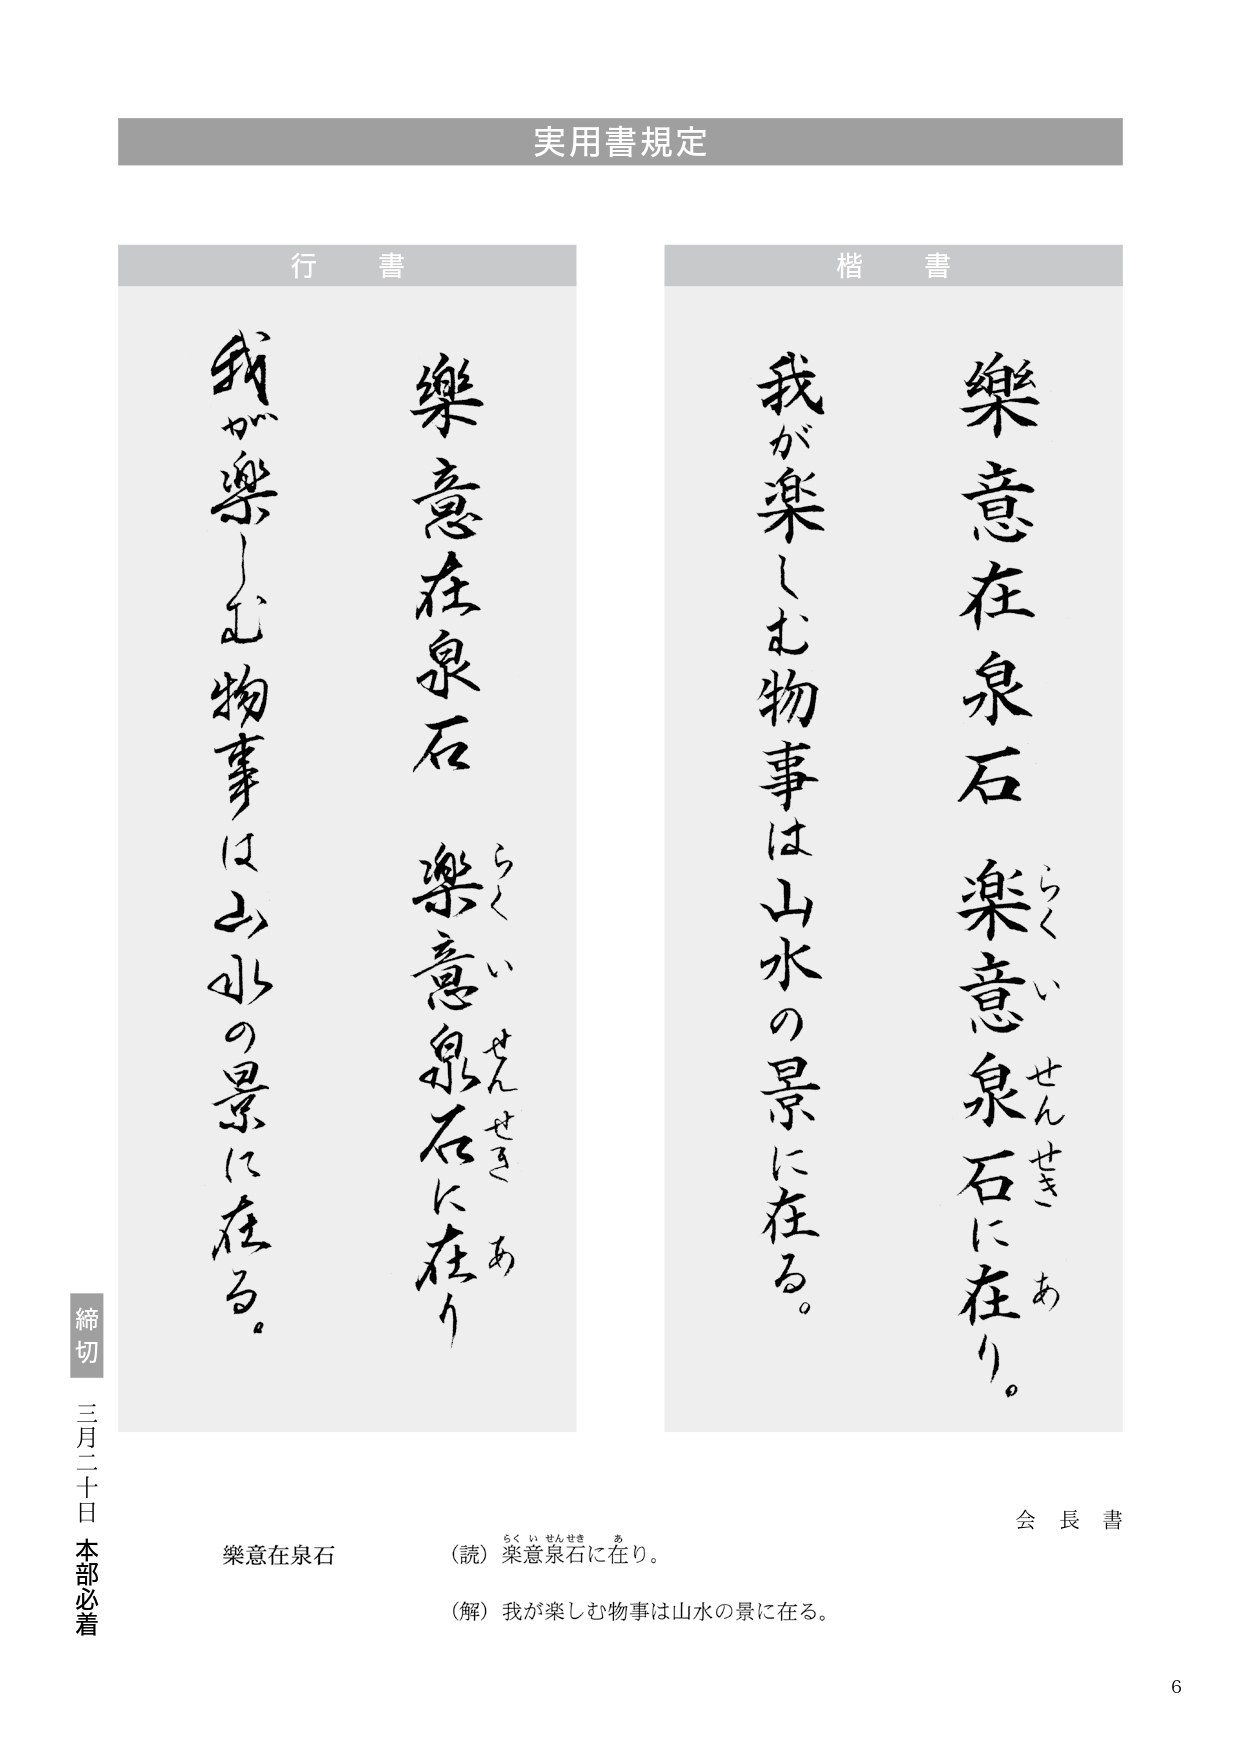 実用書規定
楷書
樂意在泉石 楽意泉石に在り。
らく い せん せき あ
我が楽しむ物事は山水の景に在る。
行書
樂意在泉石 楽意泉石に在り
らく い せん せき あ
我が楽しむ物事は山水の景に在る。
締切 三月二十日 本部必着
会長書
樂意在泉石
らく い せんせき あ
（読）楽意泉石に在り。
（解）我が楽しむ物事は山水の景に在る。
6